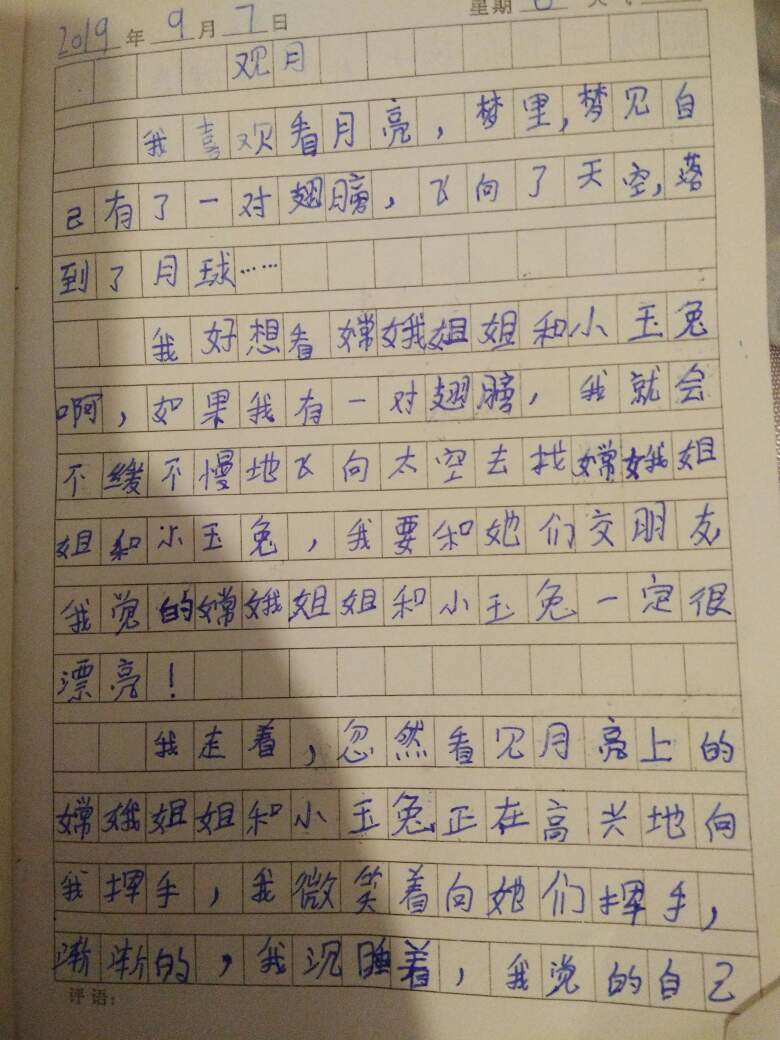 2019年9月7日 星期6
观月
我喜欢看月亮，梦里，梦见自
己有了一对翅膀，飞向了天空，落
到了月球……
我好想看嫦娥姐姐和小玉兔
啊，如果我有一对翅膀，我就会
不缓不慢地飞向太空去找嫦娥姐
姐和小玉兔，我要和她们交朋友，
我觉的嫦娥姐姐和小玉兔一定很
漂亮！
我走着，忽然看见月亮上的
嫦娥姐姐和小玉兔正在高兴地向
我挥手，我微笑着向她们挥手，
渐渐的，我沉睡着，我觉的自己
评语：